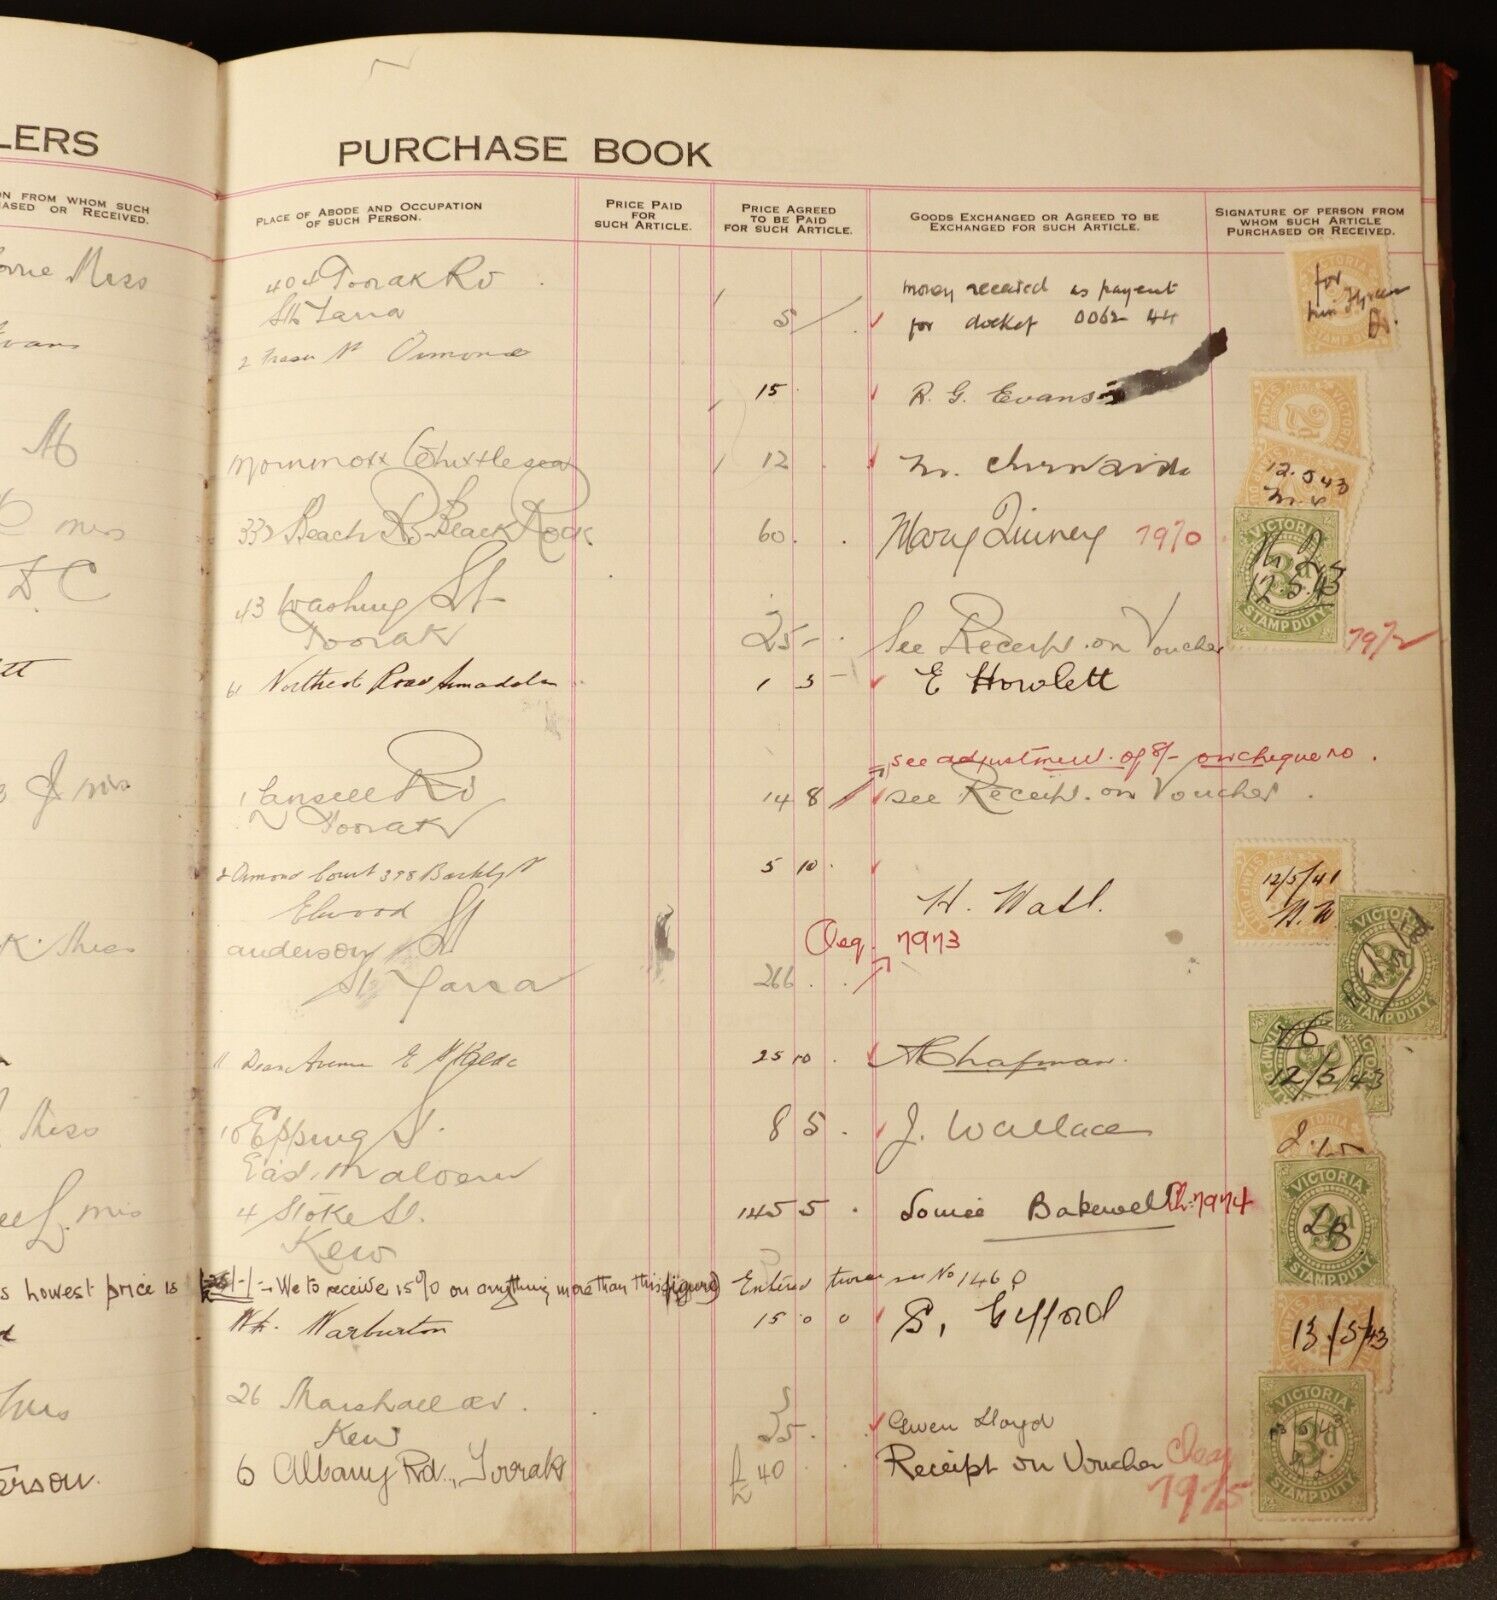 LERS
PURCHASE BOOK
ON FROM WHOM SUCH
ASED OR RECEIVED.
PLACE OF ABODE AND OCCUPATION
OF SUCH PERSON.
PRICE PAID
FOR
SUCH ARTICLE.
PRICE AGREED
TO BE PAID
FOR SUCH ARTICLE.
GOODS EXCHANGED OR AGREED TO BE
EXCHANGED FOR SUCH ARTICLE.
SIGNATURE OF PERSON FROM
WHOM SUCH ARTICLE
PURCHASED OR RECEIVED.
Miss
404 Toorak Rd
Sth Yarra
5
money received as payent
for docket 0062 44
VICTORIA
for
STAMP DUTY
vans
2 Ormond
15
R. G. Evans
VICTORIA
STAMP
12
M.
12.5.43
Mrs
332 Beach Rd Black Rock
60
Mary Quiney 7970
VICTORIA
3d
12.5.43
STAMP DUTY
D. C
43 St
Toorak
25 -
See Receipt on Voucher
7972
tt
61 Road Armadale
1 5 -
E Howlett
see adjustment of 8/- on cheque no.
J Mrs
1 Lansell Rd
Toorak
14 8
See Receipt on Voucher.
2 Ormond Court 378 Barkly St
Elwood
5 10
H. Wall.
12/5/41
K. Miss
anderson St
St Yarra
266
Cheq. 7973
VICTORIA
STAMP DUTY
11 Avenue E St Kilda
25 10
Chapman.
12/5/43
Miss
10 Epping St.
East Malvern
8 5
J. Wallace
VICTORIA
3d
LB
STAMP DUTY
Mrs
4 Stoke St.
Kew
145 5
Louie Bakewell Ch. 7974
s lowest price is /-/- We to receive 15% on anything more than this figure) Entered twice see No 1460
Warburton
15 0 0
S. Gifford
13/5/43
Mrs
26 Marshall av.
Kew
25
Gwen Lloyd
VICTORIA
3d
STAMP DUTY
erson.
6 Albany Rd., Toorak
£ 40
Receipt on Voucher Cheq
7975